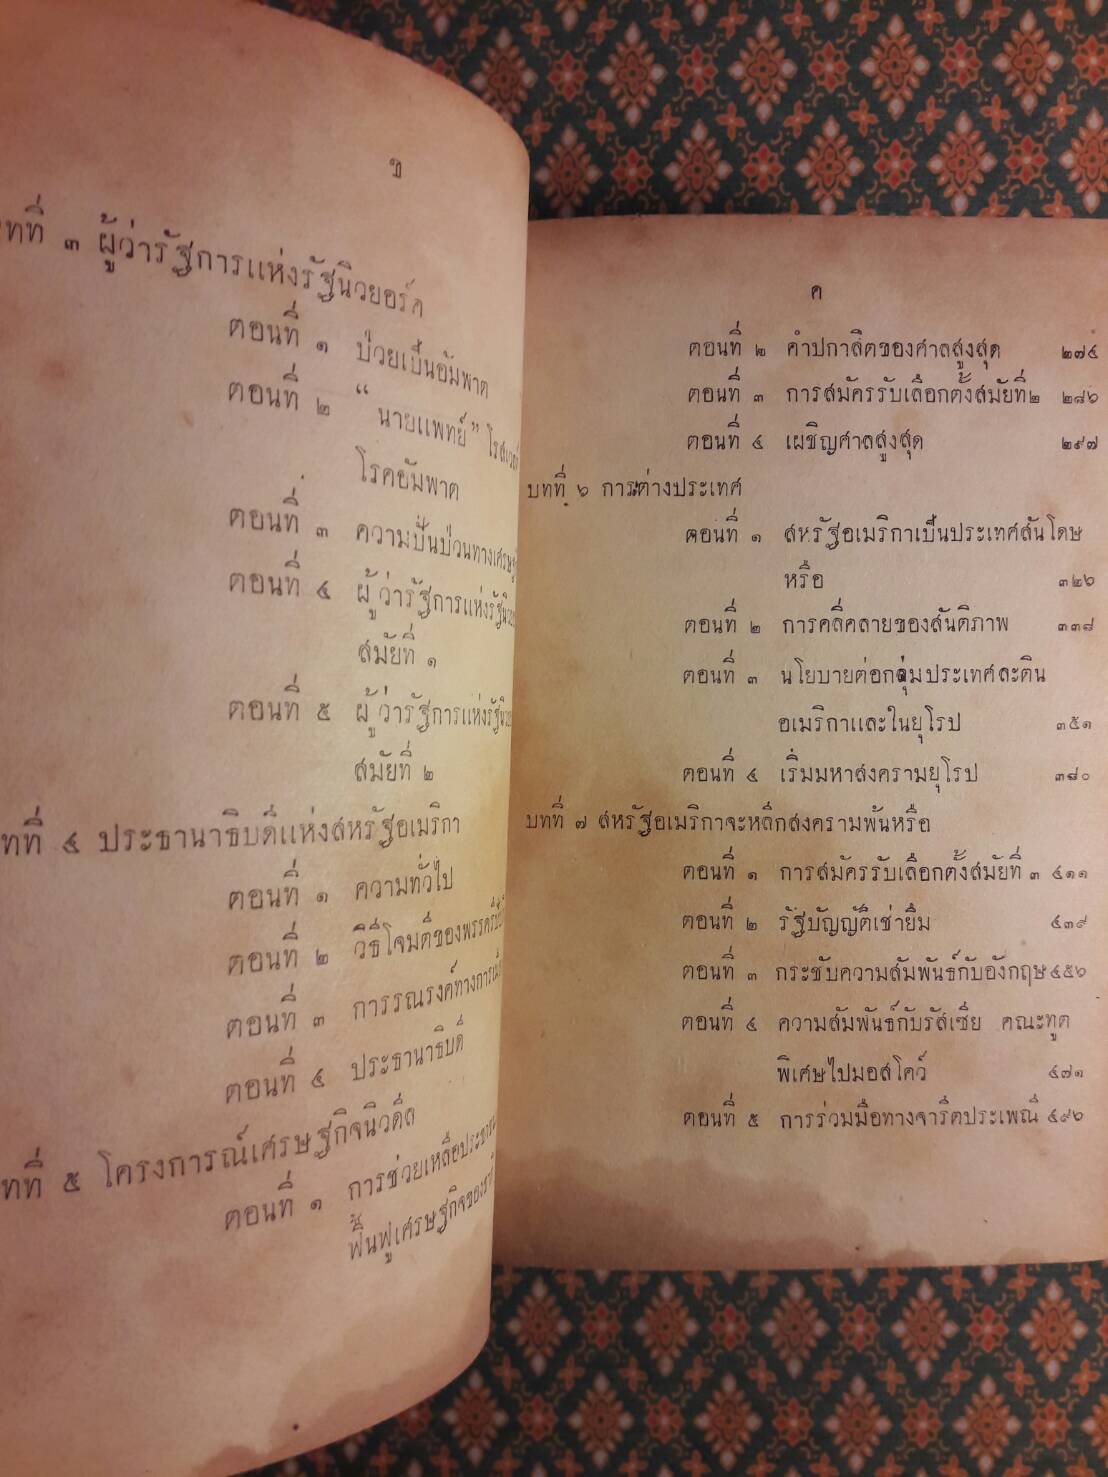 ข
บทที่ ๓ ผู้ว่ารัฐการแห่งรัฐนิวยอร์ค
ตอนที่ ๑ ป่วยเป็นอัมพาต
ตอนที่ ๒ “ นายแพทย์ ”
โรคอัมพาต
ตอนที่ ๓ ความปั่นป่วนทางเศรษฐ
ตอนที่ ๔ ผู้ว่ารัฐการแห่งรัฐนิวย
สมัยที่ ๑
ตอนที่ ๕ ผู้ว่ารัฐการแห่งรัฐนิวย
สมัยที่ ๒
ทที่ ๔ ประธานาธิบดีแห่งสหรัฐอเมริกา
ตอนที่ ๑ ความทั่วไป
ตอนที่ ๒ วิธีโจมตีของพรรค
ตอนที่ ๓ การรณรงค์ทางการเมือ
ตอนที่ ๔ ประธานาธิบดี
ทที่ ๕ โครงการณ์เศรษฐกิจนิวดีล
ตอนที่ ๑ การช่วยเหลือประชาชน
พื้นฟูเศรษฐกิจของชาติ
ค
ตอนที่ ๒ คำปกาสิตของศาลสูงสุด ๒๗๕
ตอนที่ ๓ การสมัครรับเลือกตั้งสมัยที่๒ ๒๘๖
ตอนที่ ๔ เผชิญศาลสูงสุด ๒๙๗
บทที่ ๖ การต่างประเทศ
ตอนที่ ๑ สหรัฐอเมริกาเป็นประเทศสันโดษ
หรือ ๓๒๖
ตอนที่ ๒ การคลี่คลายของสันติภาพ ๓๓๘
ตอนที่ ๓ นโยบายต่อกลุ่มประเทศละติน
อเมริกาและในยุโรป ๓๕๑
ตอนที่ ๔ เริ่มมหาสงครามยุโรป ๓๘๐
บทที่ ๗ สหรัฐอเมริกาจะหลีกสงครามพ้นหรือ
ตอนที่ ๑ การสมัครรับเลือกตั้งสมัยที่ ๓ ๔๑๑
ตอนที่ ๒ รัฐบัญญัติเช่ายืม ๔๓๙
ตอนที่ ๓ กระชับความสัมพันธ์กับอังกฤษ ๔๕๖
ตอนที่ ๔ ความสัมพันธ์กับรัสเซีย คณะทูต
พิเศษไปมอสโคว์ ๔๗๑
ตอนที่ ๕ การร่วมมือทางจารีตประเพณี ๔๙๖